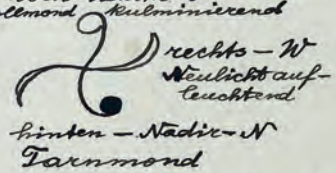 ollmond kulminierend
rechts – W
Neulicht auf-
leuchtend
hinten – Nadir – N
Tarnmond